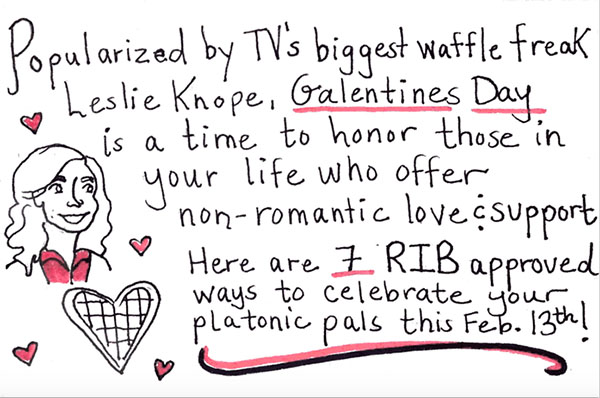 Popularized by TV's biggest waffle freak
Leslie Knope, Galentines Day
is a time to honor those in
your life who offer
non-romantic love & support
Here are 7 RIB approved
ways to celebrate your
platonic pals this Feb. 13th!